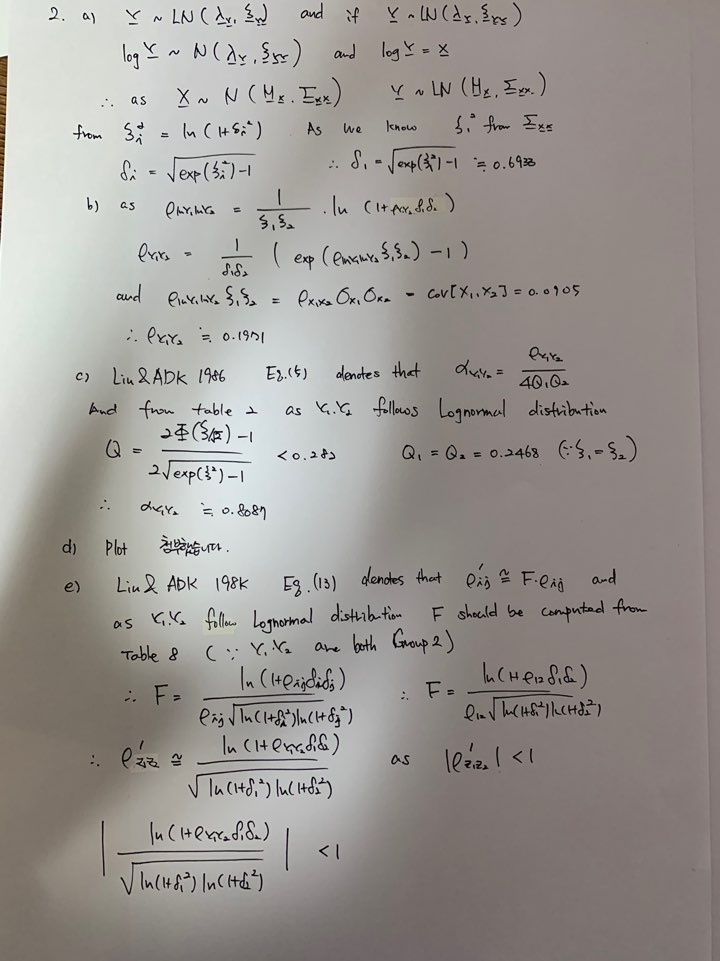 2. a) Y ~ LN (λ_Y, ξ_YY) and if Y ~ LN (λ_Y, ξ_YY)
log Y ~ N (λ_Y, ξ_YY) and log Y = X
∴ as X ~ N (M_X, Σ_XX) Y ~ LN (M_X, Σ_XX)
from ξ_i² = ln (1+δ_i²) As we know ξ_i² from Σ_XX
δ_i = √(exp(ξ_i²)-1) ∴ δ_1 = √(exp(ξ_1²)-1) ≒ 0.6933
b) as ρ_lnY₁lnY₂ = 1/(ξ₁ξ₂) · ln (1+ρ_Y₁Y₂ δ₁δ₂)
ρ_Y₁Y₂ = 1/(δ₁δ₂) ( exp (ρ_lnY₁lnY₂ ξ₁ξ₂) - 1 )
and ρ_lnY₁lnY₂ ξ₁ξ₂ = ρ_X₁X₂ σ_X₁ σ_X₂ = Cov[X₁,X₂] = 0.0905
∴ ρ_Y₁Y₂ ≒ 0.1971
c) Liu & ADK 1986 Eq.(5) denotes that α_Y₁Y₂ = ρ_Y₁Y₂/(4Q₁Q₂)
And from table 2 as Y₁.Y₂ follows Lognormal distribution
Q = (2Φ(ξ/√2) - 1)/(2√(exp(ξ²)-1)) < 0.282 Q₁ = Q₂ = 0.2468 (∵ξ₁=ξ₂)
∴ α_Y₁Y₂ ≒ 0.8087
d) Plot 첨부했습니다.
e) Liu & ADK 198K Eq.(13) denotes that ρ'_ij ≅ F·ρ_ij and
as Y₁.Y₂ follow Lognormal distribution F should be computed from
Table 8 ( ∵ Y₁.Y₂ are both Group 2 )
∴ F = ln (1+ρ_ij δ_i δ_j)/(ρ_ij √(ln(1+δ_i²) ln(1+δ_j²))) ∴ F = ln (1+ρ₁₂ δ₁δ₂)/(ρ₁₂ √(ln(1+δ₁²) ln(1+δ₂²)))
∴ ρ'_Z₁Z₂ ≅ ln (1+ρ_Y₁Y₂ δ₁δ₂)/√(ln(1+δ₁²) ln(1+δ₂²)) as |ρ'_Z₁Z₂| < 1
| ln (1+ρ_Y₁Y₂ δ₁δ₂)/√(ln(1+δ₁²) ln(1+δ₂²)) | < 1